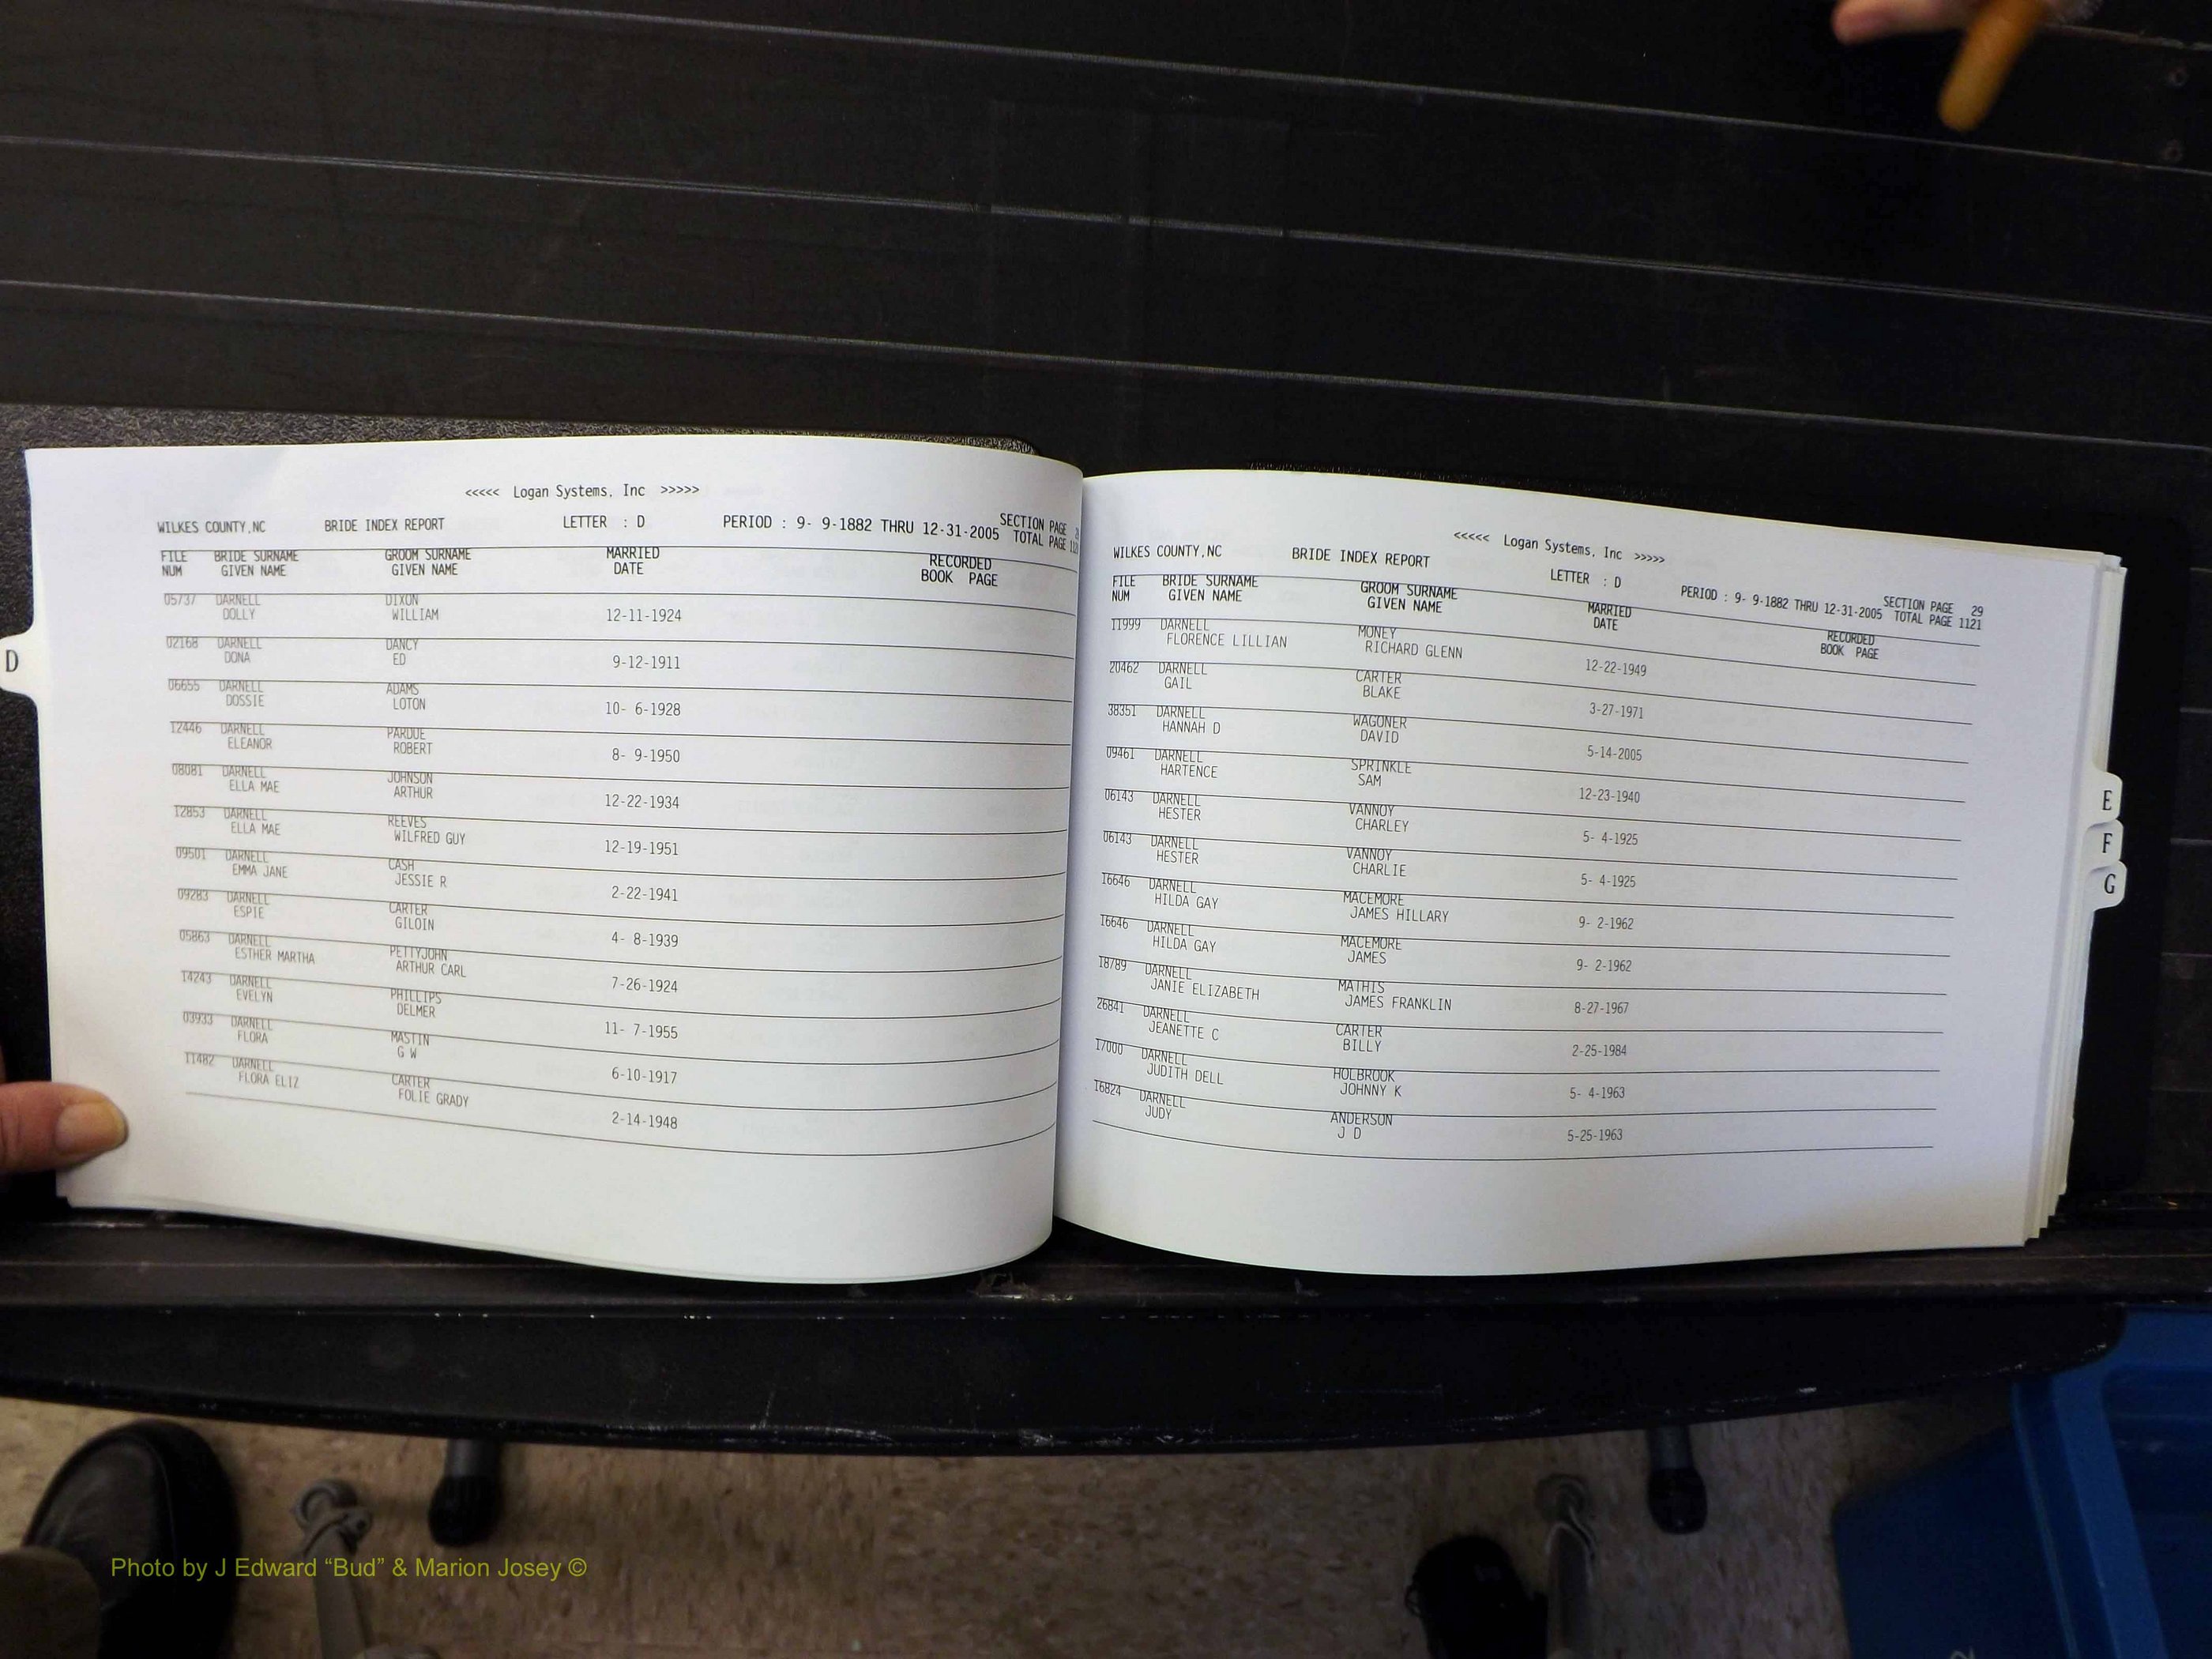 <<<<< Logan Systems, Inc >>>>>
WILKES COUNTY,NC BRIDE INDEX REPORT LETTER : D PERIOD : 9- 9-1882 THRU 12-31-2005 SECTION PAGE
TOTAL PAGE
FILE BRIDE SURNAME GROOM SURNAME MARRIED RECORDED
NUM GIVEN NAME GIVEN NAME DATE BOOK PAGE
05737 DARNELL DIXON
DOLLY WILLIAM 12-11-1924
02168 DARNELL DANCY
DONA ED 9-12-1911
06655 DARNELL ADAMS
DOSSIE LOTON 10- 6-1928
12446 DARNELL PARDUE
ELEANOR ROBERT 8- 9-1950
08081 DARNELL JOHNSON
ELLA MAE ARTHUR 12-22-1934
12853 DARNELL REEVES
ELLA MAE WILFRED GUY 12-19-1951
09501 DARNELL CASH
EMMA JANE JESSIE R 2-22-1941
09283 DARNELL CARTER
ESPIE GILOIN 4- 8-1939
05863 DARNELL PETTYJOHN
ESTHER MARTHA ARTHUR CARL 7-26-1924
14243 DARNELL PHILLIPS
EVELYN DELMER 11- 7-1955
03933 DARNELL MASTIN
FLORA G W 6-10-1917
11482 DARNELL CARTER
FLORA ELIZ FOLIE GRADY 2-14-1948
<<<<< Logan Systems, Inc >>>>>
WILKES COUNTY,NC BRIDE INDEX REPORT LETTER : D PERIOD : 9- 9-1882 THRU 12-31-2005 SECTION PAGE 29
TOTAL PAGE 1121
FILE BRIDE SURNAME GROOM SURNAME MARRIED RECORDED
NUM GIVEN NAME GIVEN NAME DATE BOOK PAGE
11999 DARNELL MONEY
FLORENCE LILLIAN RICHARD GLENN 12-22-1949
20462 DARNELL CARTER
GAIL BLAKE 3-27-1971
38351 DARNELL WAGONER
HANNAH D DAVID 5-14-2005
09461 DARNELL SPRINKLE
HARTENCE SAM 12-23-1940
06143 DARNELL VANNOY
HESTER CHARLEY 5- 4-1925
06143 DARNELL VANNOY
HESTER CHARLIE 5- 4-1925
16646 DARNELL MACEMORE
HILDA GAY JAMES HILLARY 9- 2-1962
16646 DARNELL MACEMORE
HILDA GAY JAMES 9- 2-1962
18789 DARNELL MATHIS
JANIE ELIZABETH JAMES FRANKLIN 8-27-1967
26841 DARNELL CARTER
JEANETTE C BILLY 2-25-1984
17000 DARNELL HOLBROOK
JUDITH DELL JOHNNY K 5- 4-1963
16824 DARNELL ANDERSON
JUDY J D 5-25-1963
D
E
F
G
Photo by J Edward “Bud” & Marion Josey ©